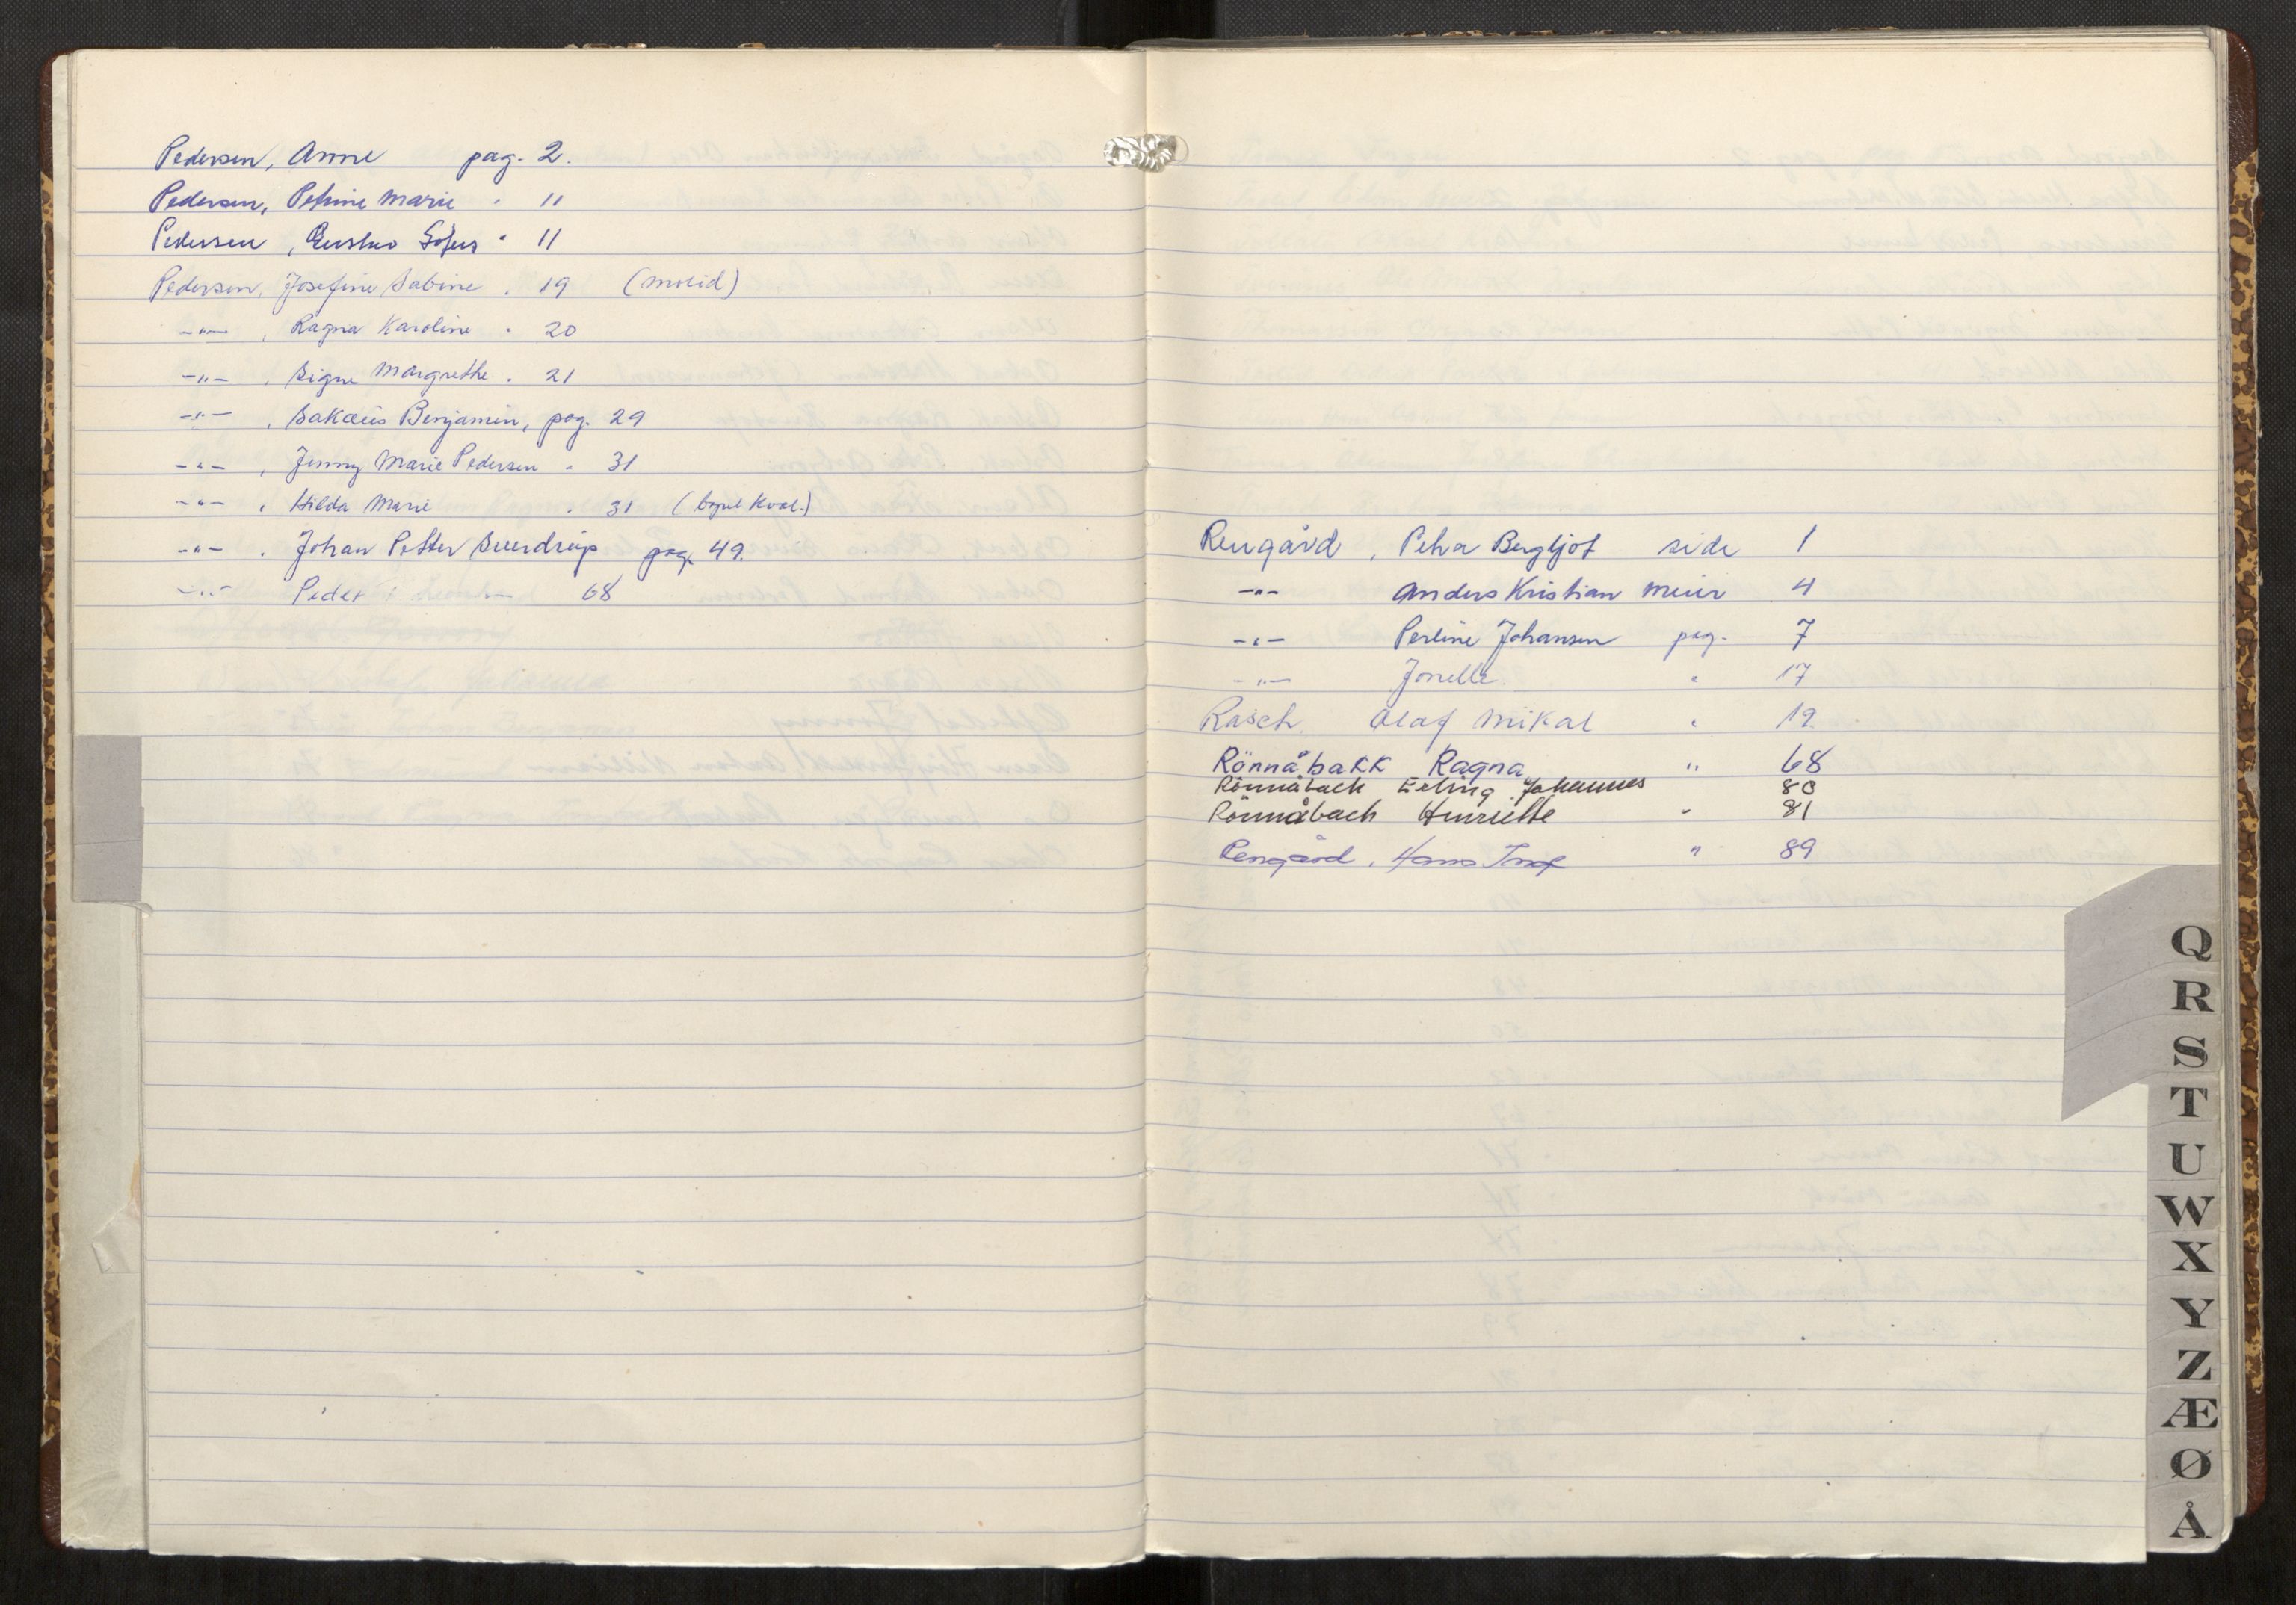 Pedersen, Anne pag. 2.
Pedersen, Petrine Marie " 11
Pedersen, Gustav Sofus " 11
Pedersen, Josefine Sabine . 19 (Molid)
-"- , Ragna Karoline . 20
-"- , Signe Margrethe . 21
-"- , Sakæus Benjamin, pag. 29
-"- , Jenny Marie Pedersen " 31
-"- , Hilda Marie . 31
-"- . Johan Petter Sverdrup pag. 49.
-"- Peder 68
Rengård, Petra Bergljot side 1
-"- Anders Kristian Meier 4
-"- Perline Johansen pag. 7
-"- Jonelle " 17
Rasch Olaf Mikal " 19.
Rönnåbakk Ragna " 68
Rönnåbach Erling Johannes 80
Rönnåbach Henriette " 81
Rengård, Hans " 89
Q
R
S
T
U
W
X
Y
Z
Æ
Ø
Å